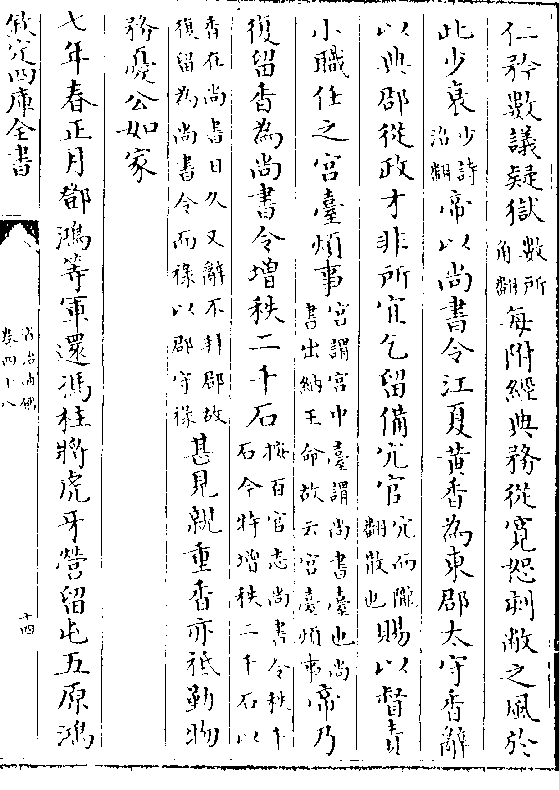 仁矜數議疑獄數所角翻每附經典務從寛恕刻敝之風於
此少衰少詩沼翻帝以尚書令江夏黄香為東郡太守香辭
以典郡從政才非所宜乞留備冗官冗而隴翻散也賜以督責
小職任之宫臺煩事宫謂宫中臺謂尚書臺也尚書出納王命故云宫臺煩事帝乃
復留香為尚書令增秩二千石據百官志尚書令秩千石今特增秩二千石以
香在尚書日久又辭不拜郡故復留為尚書令而祿以郡守祿甚見親重香亦祗勤物
務憂公如家
七年春正月鄧鴻等軍還馮柱將虎牙營留屯五原鴻
欽定四庫全書
資治通鑑
卷四十八
十四